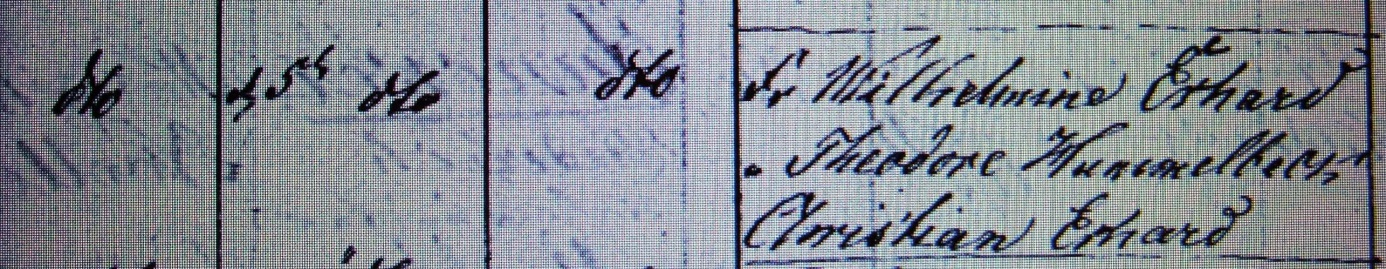 do 25th do do Sr Wilhelmine Erhard
Theodore Hummelberg,
Christian Erhard